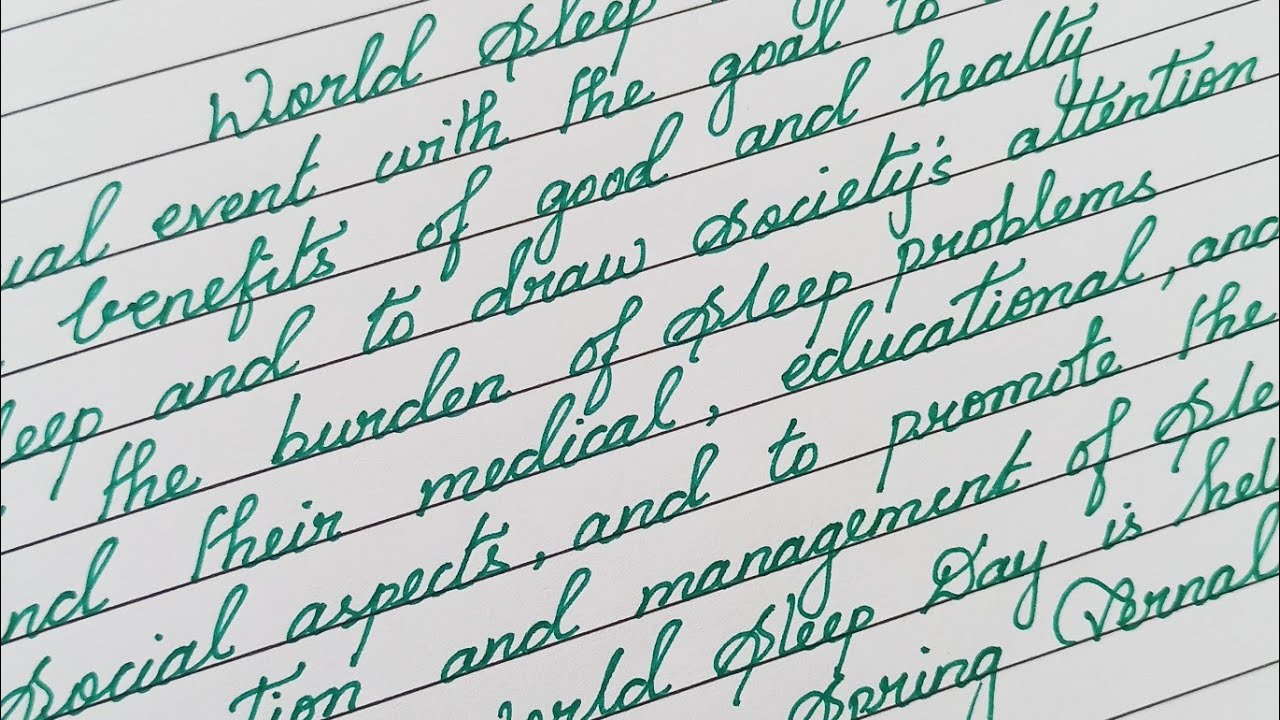 World Sleep
event with the goal to
benefits of good and healty
and to draw society's attention
the burden of sleep problems
their medical, educational, and
social aspects, and to promote the
and management of
Sleep Day is
Spring Vernal